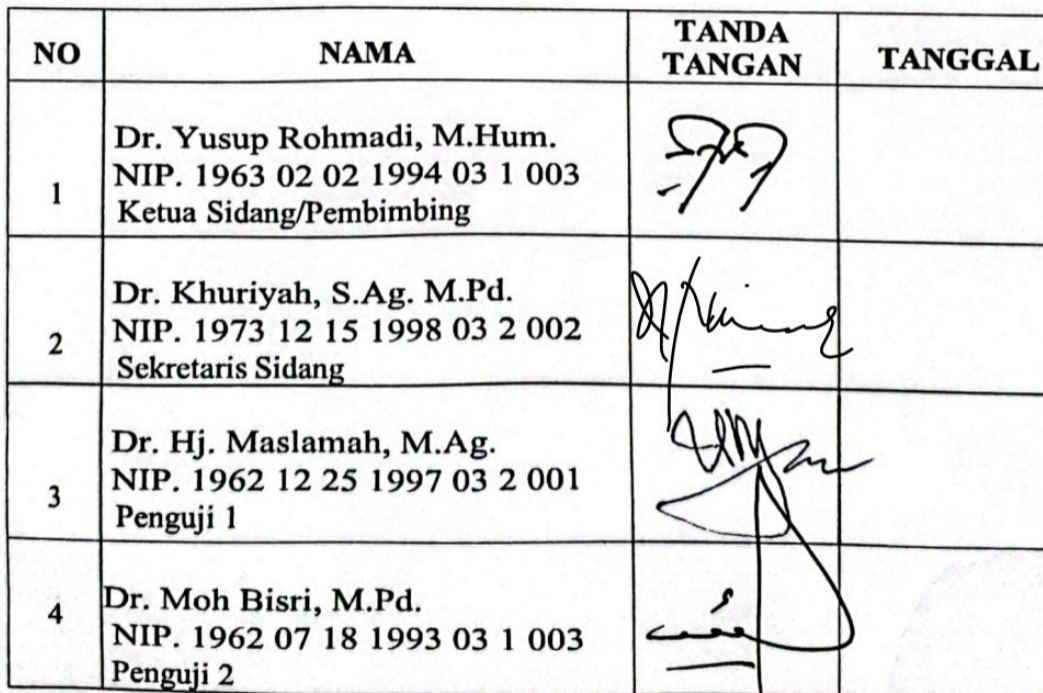 NO NAMA TANDA TANGAN TANGGAL
1 Dr. Yusup Rohmadi, M.Hum.
NIP. 1963 02 02 1994 03 1 003
Ketua Sidang/Pembimbing
2 Dr. Khuriyah, S.Ag. M.Pd.
NIP. 1973 12 15 1998 03 2 002
Sekretaris Sidang
3 Dr. Hj. Maslamah, M.Ag.
NIP. 1962 12 25 1997 03 2 001
Penguji 1
4 Dr. Moh Bisri, M.Pd.
NIP. 1962 07 18 1993 03 1 003
Penguji 2